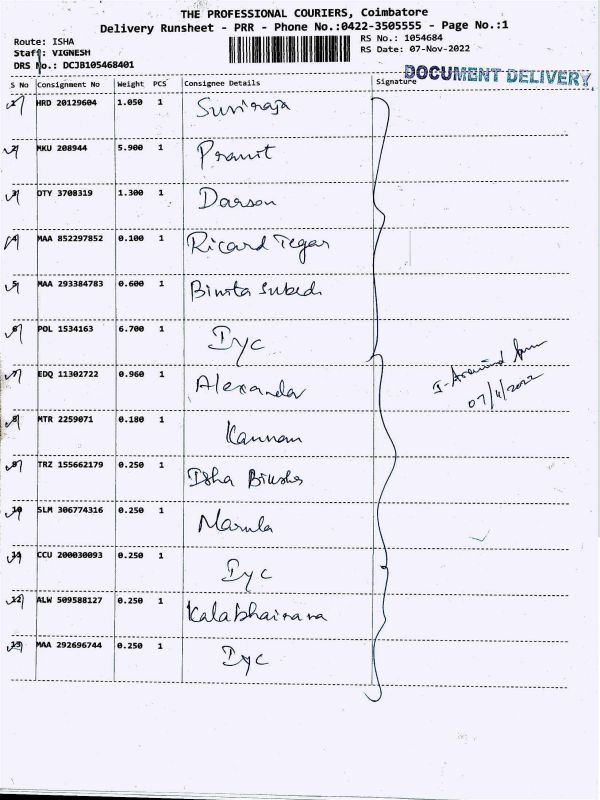 THE PROFESSIONAL COURIERS, Coimbatore
Delivery Runsheet - PRR - Phone No.:0422-3505555 - Page No.:1
Route: ISHA
RS No.: 1054684
Staff: VIGNESH
RS Date: 07-Nov-2022
DRS No.: DCJB105468401
DOCUMENT DELIVERY
S No Consignment No Weight PCS Consignee Details Signature
1 HRD 20129604 1.050 1 Suniraja
2 MKU 208944 5.900 1 Pranit
3 DTY 3708319 1.300 1 Darson
4 MAA 852297852 0.100 1 Ricard Tegar
5 MAA 293384783 0.600 1 Binita Subedi
6 POL 1534163 6.700 1 Iyc
7 EDQ 11302722 0.960 1 Alexander
8 MTR 2259071 0.180 1 Kannan
9 TRZ 155662179 0.250 1 Isha Biksha
10 SLM 306774316 0.250 1
11 CCU 200030093 0.250 1 Iyc
12 ALW 509588127 0.250 1 Kalabhairava
13 MAA 292696744 0.250 1 Iyc
07/11/2022